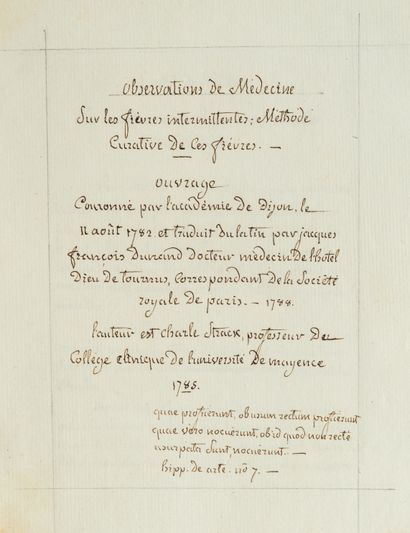 Observations de Médecine
Sur les fièvres intermittentes; Méthode
Curative De Ces fiévres. —
ouvrage
Couronné par l'académie De Dijon, le
11 août 1782. et traduit Du latin par jacques
françois Durand Docteur médecin De l'hotel
Dieu de tournus, Correspondant De la Société
royale De paris. — 1788.
l'auteur est Charle Strack, professeur Du
Collège clinique De l'université De mayence
1785.
quae profuerunt, ob usum rectum profuerunt
quae vero nocuerunt, ob id quod non recte
usurpata sunt, nocuerunt. —
hipp. de arte. no 7. —